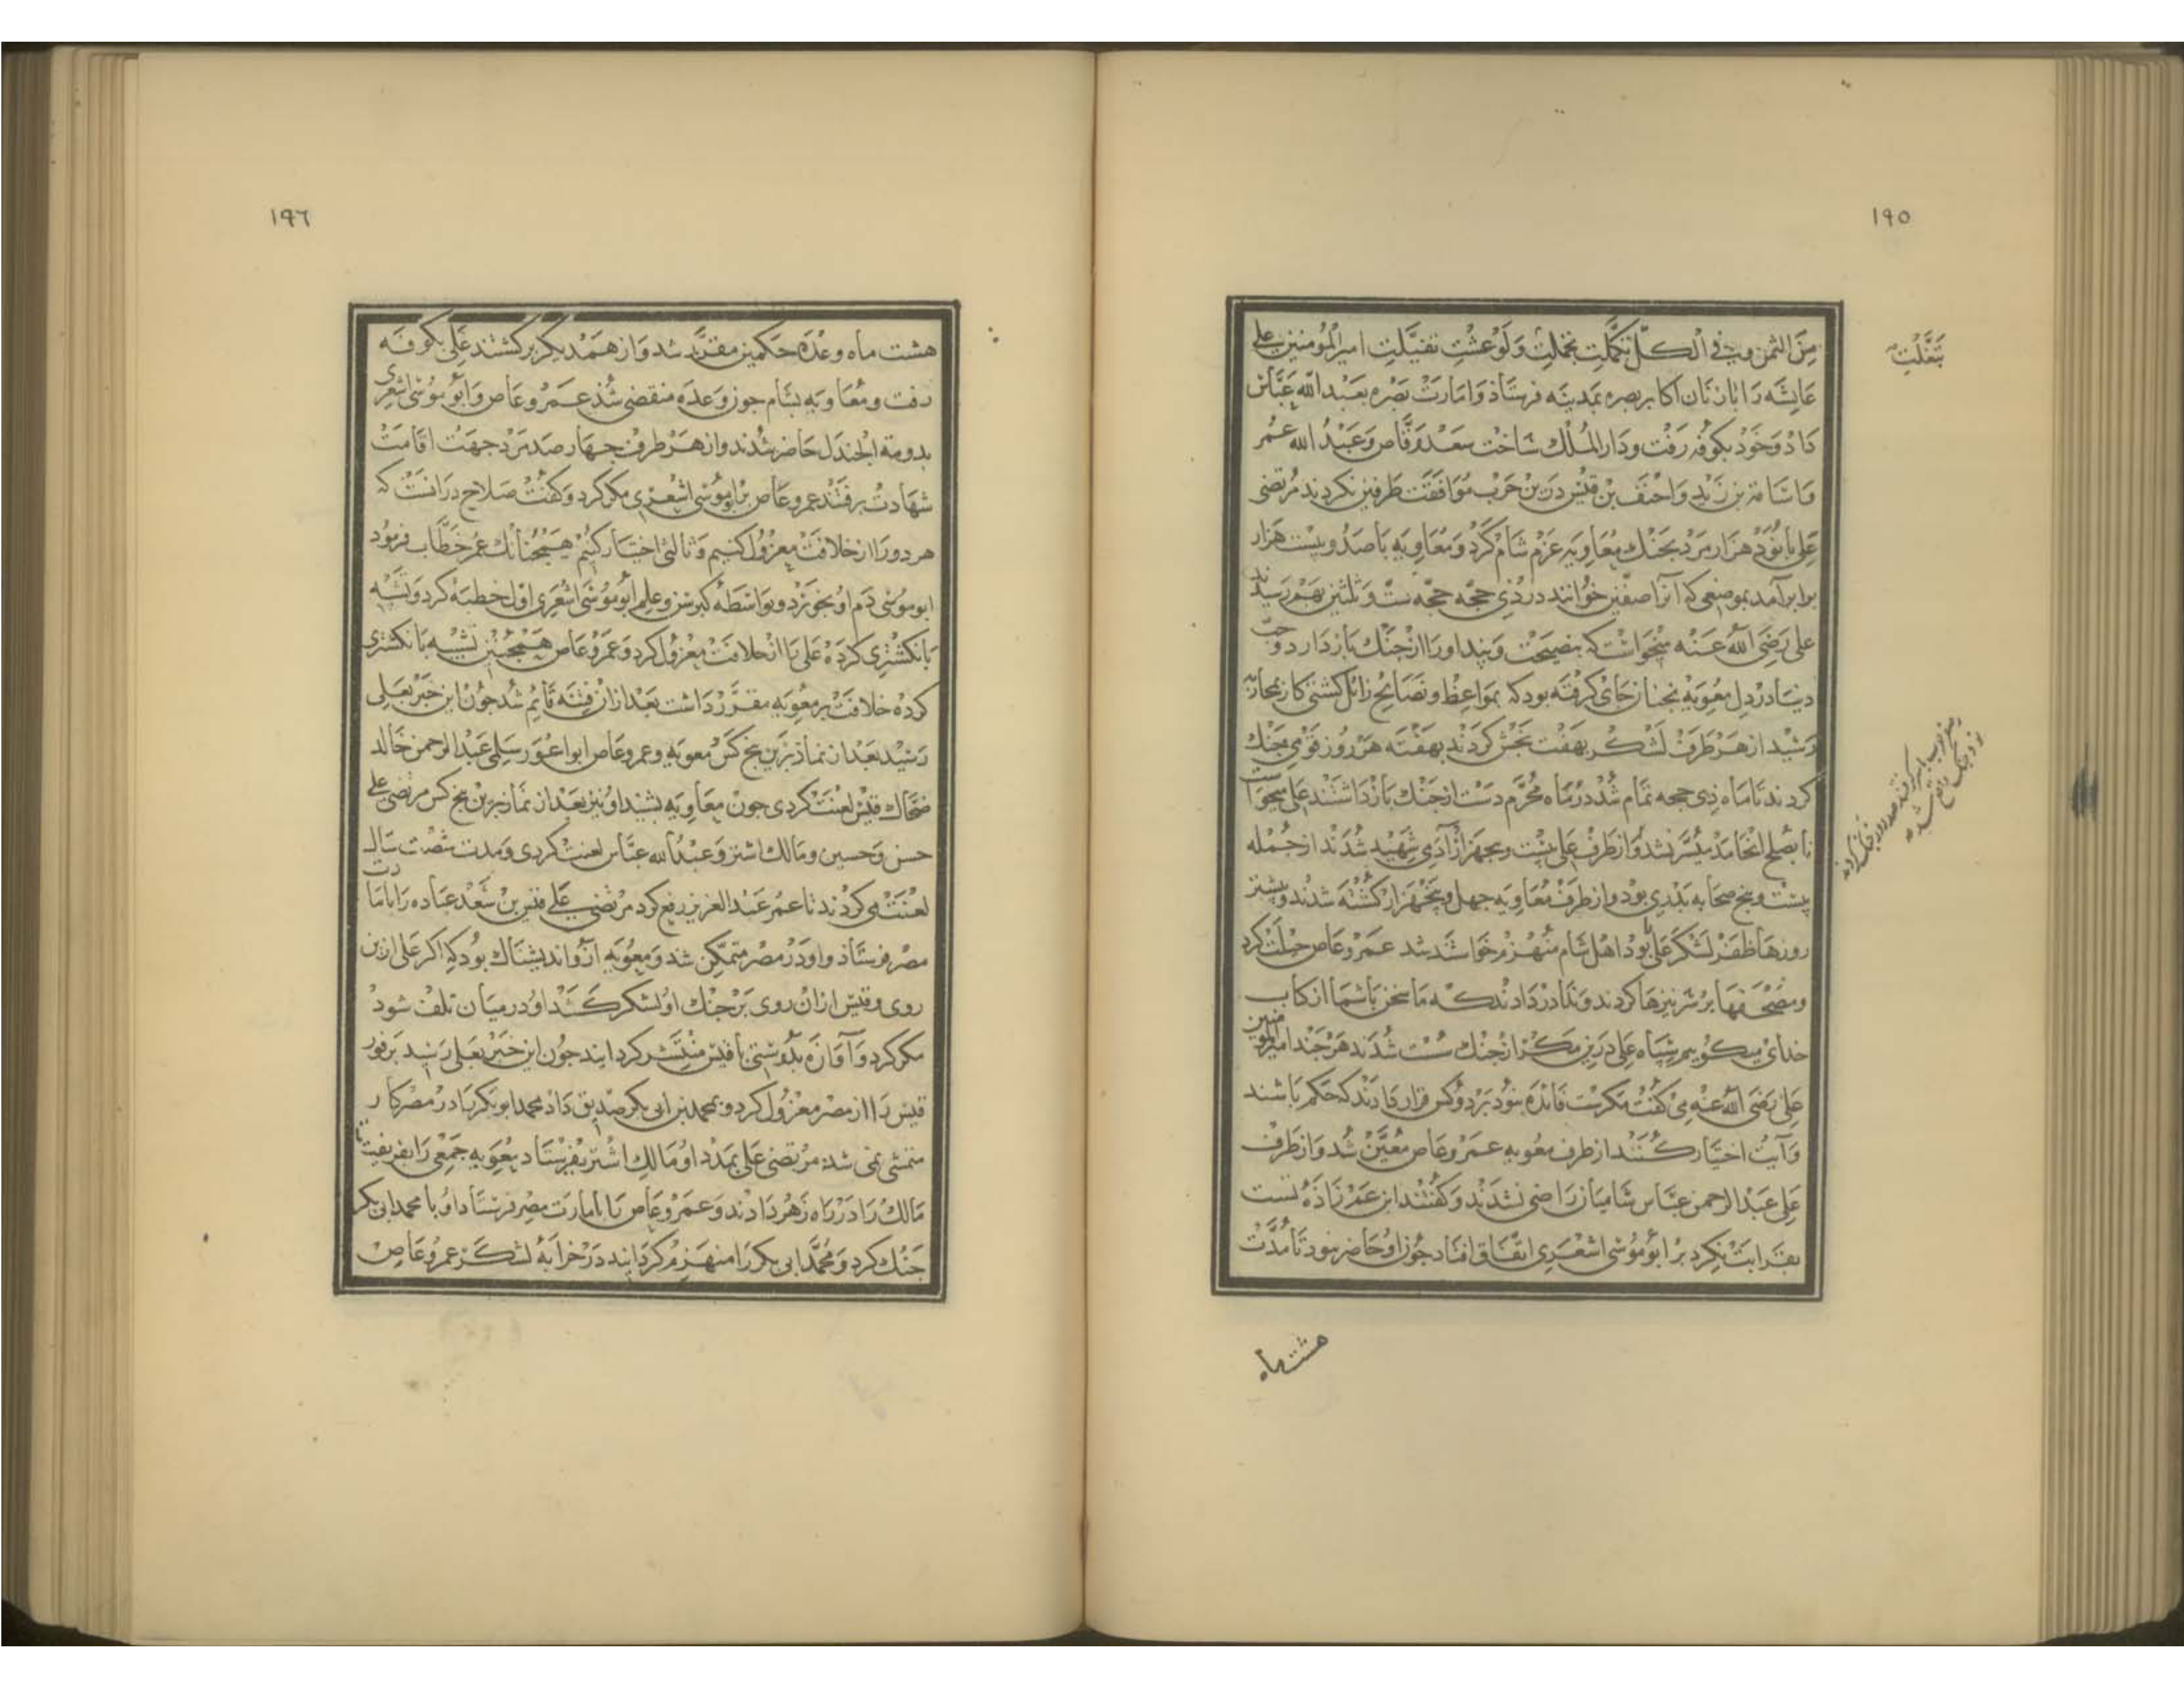 ١٩٥
مِنَ الثمن وفی الكلّ تكمّلتِ تجملتِ وَلَوْ عشتِ تفیّلتِ امیرالمؤمنین علی
تَبَغَّلْتِ
عایشه را با زنان اکابر بصره بمدینه فرستاذ و امارت بصره بعبد الله عبّاس
داد و خود بکوفه رفت و دار الملك ساخت سعد وقّاص و عبد الله عمر
و اسامة بن زید و احنف بن قیس درین حرب موافقت طرفین نکردند مرتضی
علی با نود هزار مرد بجنك معاویه عزم شام کرد و معاویه با صد و بیست هزار
برابر آمد بموضعی که آنرا صفّین خوانند در ذی حجّه حجّه ستّ و ثلثین بهم رسیدند
علی رضی الله عنه میخواست که بنصیحت و پند او را از جنك باز دارد و حبّ
دنیا در دل معویه نچنان جای کرفته بود که بمواعظ و نصایح زائل کشتی کار بمحاربه
رسید از هر طرف لشکر بهفت بخش کردند بهفته هر روز قومی جنك
کردند تا ماه ذی حجه تمام شد در ماه محرّم دست از جنك باز داشتند علی میخواست
تا بصلح انجامد میسّر نشد و از طرف علی بیست و پنجهزار آدمی شهید شدند از جمله
بیست و پنج صحابه بدری بود و از طرف معاویه چهل و پنجهزار کشته شدند و بیشتر
روزها ظفر لشکر علی را بود اهل شام منهزم خواست شد عمرو عاص حیلت کرد
و مصحفها بر سر نیزها کردند و ندا در دادند که ما سخن با شما از کتاب
خدای میکوییم سپاه علی درین مکر از جنك سست شدند هر چند امیر المؤمنین
علی رضی الله عنه می کفت مکرست فائده نبود بر دو کس قرار دادند که حکم باشند
و آیت اختیار کنند از طرف معویه عمرو عاص معیّن شد و از طرف
علی عبد الرحمن عبّاس شامیان راضی نشدند و کفتند ابن عمّ زاده تست
بقرابت نکرد بر ابو موسی اشعری اتفاق افتاد چون او حاضر نبود تا مدّت
هشت ماه
١٩٦
هشت ماه وعده حکمین مقرّر شد و از همدیکر برکشتند علی بکوفه
رفت و معاویه بشام چون وعده منقضی شد عمرو عاص و ابو موسی اشعری
بدومة الجندل حاضر شدند و از هر طرف چهار صد مرد جهت اقامت
شهادت برفتند عمرو عاص با ابو موسی اشعری مکر کرد و کفت صلاح در انست که
هر دو را از خلافت معزول کنیم و ثالثی اختیار کنیم همچنانك عمر خطّاب فرمود
ابو موسی دم او بخورد و بواسطه کبر سن و علم ابو موسی اشعری اوّل خطبه کرد و تشبیه
بانکشتری کرده علی را از خلافت معزول کرد و عمرو عاص همچنین تشبیه بانکشتری
کرده خلافت بر معویه مقرّر داشت بعد از ان فتنه قائم شد چون این خبر بعلی
رسید بعد از نماذ برین پنج کس معویه و عمرو عاص ابو اعور سلمی عبد الرحمن خالد
ضحّاك قیس لعنت کردی چون معاویه بشنید او نیز بعد از نماز برین پنج کس مرتضی علی
حسن و حسین و مالك اشتر و عبد الله عبّاس لعنت کردی و مدت شصت سال
لعنت می کردند تا عمر عبد العزیز رفع کرد مرتضی علی قیس بن سعد عباده را بامارت
مصر فرستاذ و او در مصر متمکّن شد و معویه از و اندیشناك بود که اکر علی ازین
روی و قیس از ان روی بر جنك او لشکر کشد او در میان تلف شود
مکر کرد و آوازه بدوستی با قیس منتشر کردانید چون این خبر بعلی رسید بر فور
قیس را از مصر معزول کرد و بمحمد بن ابی بکر صدیق داد محمد ابو بکر را در مصر کار
متمشی نمی شد مرتضی علی بمدد او مالك اشتر بفرستاد معویه جمعی را بفریفت تا
مالك را در راه زهر دادند و عمرو عاص را بامارت مصر فرستاد او با محمد ابی بکر
جنك کرد و محمّد ابی بکر را منهزم کردانید در خرابه لشکر عمرو عاص